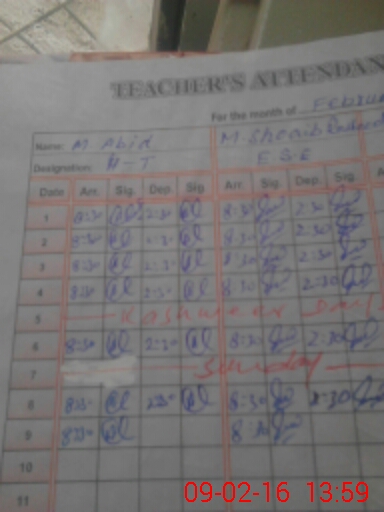 TEACHER'S ATTENDAN
For the month of Februa
Name: M Abid M. Shoaib
Designation: H-T E.S.E
Date Arr. Sig. Dep. Sig. Arr. Sig. Dep. Sig. A
1 8:30 2:30 8:30 2:30
2 8:30 2:30 8:30 2:30
3 8:30 2:30 8:30 2:30
4 8:30 2:30 8:30 2:30
5 Kashmeer Day
6 8:30 2:30 8:30 2:30
7 Sunday
8 8:30 2:30 8:30 2:30
9 8:30 8:30
10
11
09-02-16 13:59